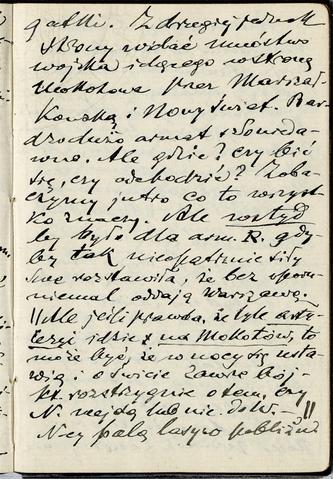 gatki. Z drugiej jednak
strony widać mnóstwo
wojska idącego w stronę
Mokotowa przez Marszał-
kowską i Nowy Świat. Bar-
dzo dużo armat
Ale gdzie? czy bić
się, czy odchodzić? Zoba-
czymy jutro co to wszyst-
ko znaczy. Ale wstyd
by było dla arm. R. gdy
by tak nieopatrznie siły
swe rozstawiła, że bez
niemal oddają Warszawę.
Ale jeśli prawda, że tyle arty-
leryi idzie na Mokotów, to
może być, że w nocy się usta-
wią i o świcie zawre bój-
rozstrzygnie o tem, czy
N. wejdą lub nie.
N-cy palą lasy w pobliżu